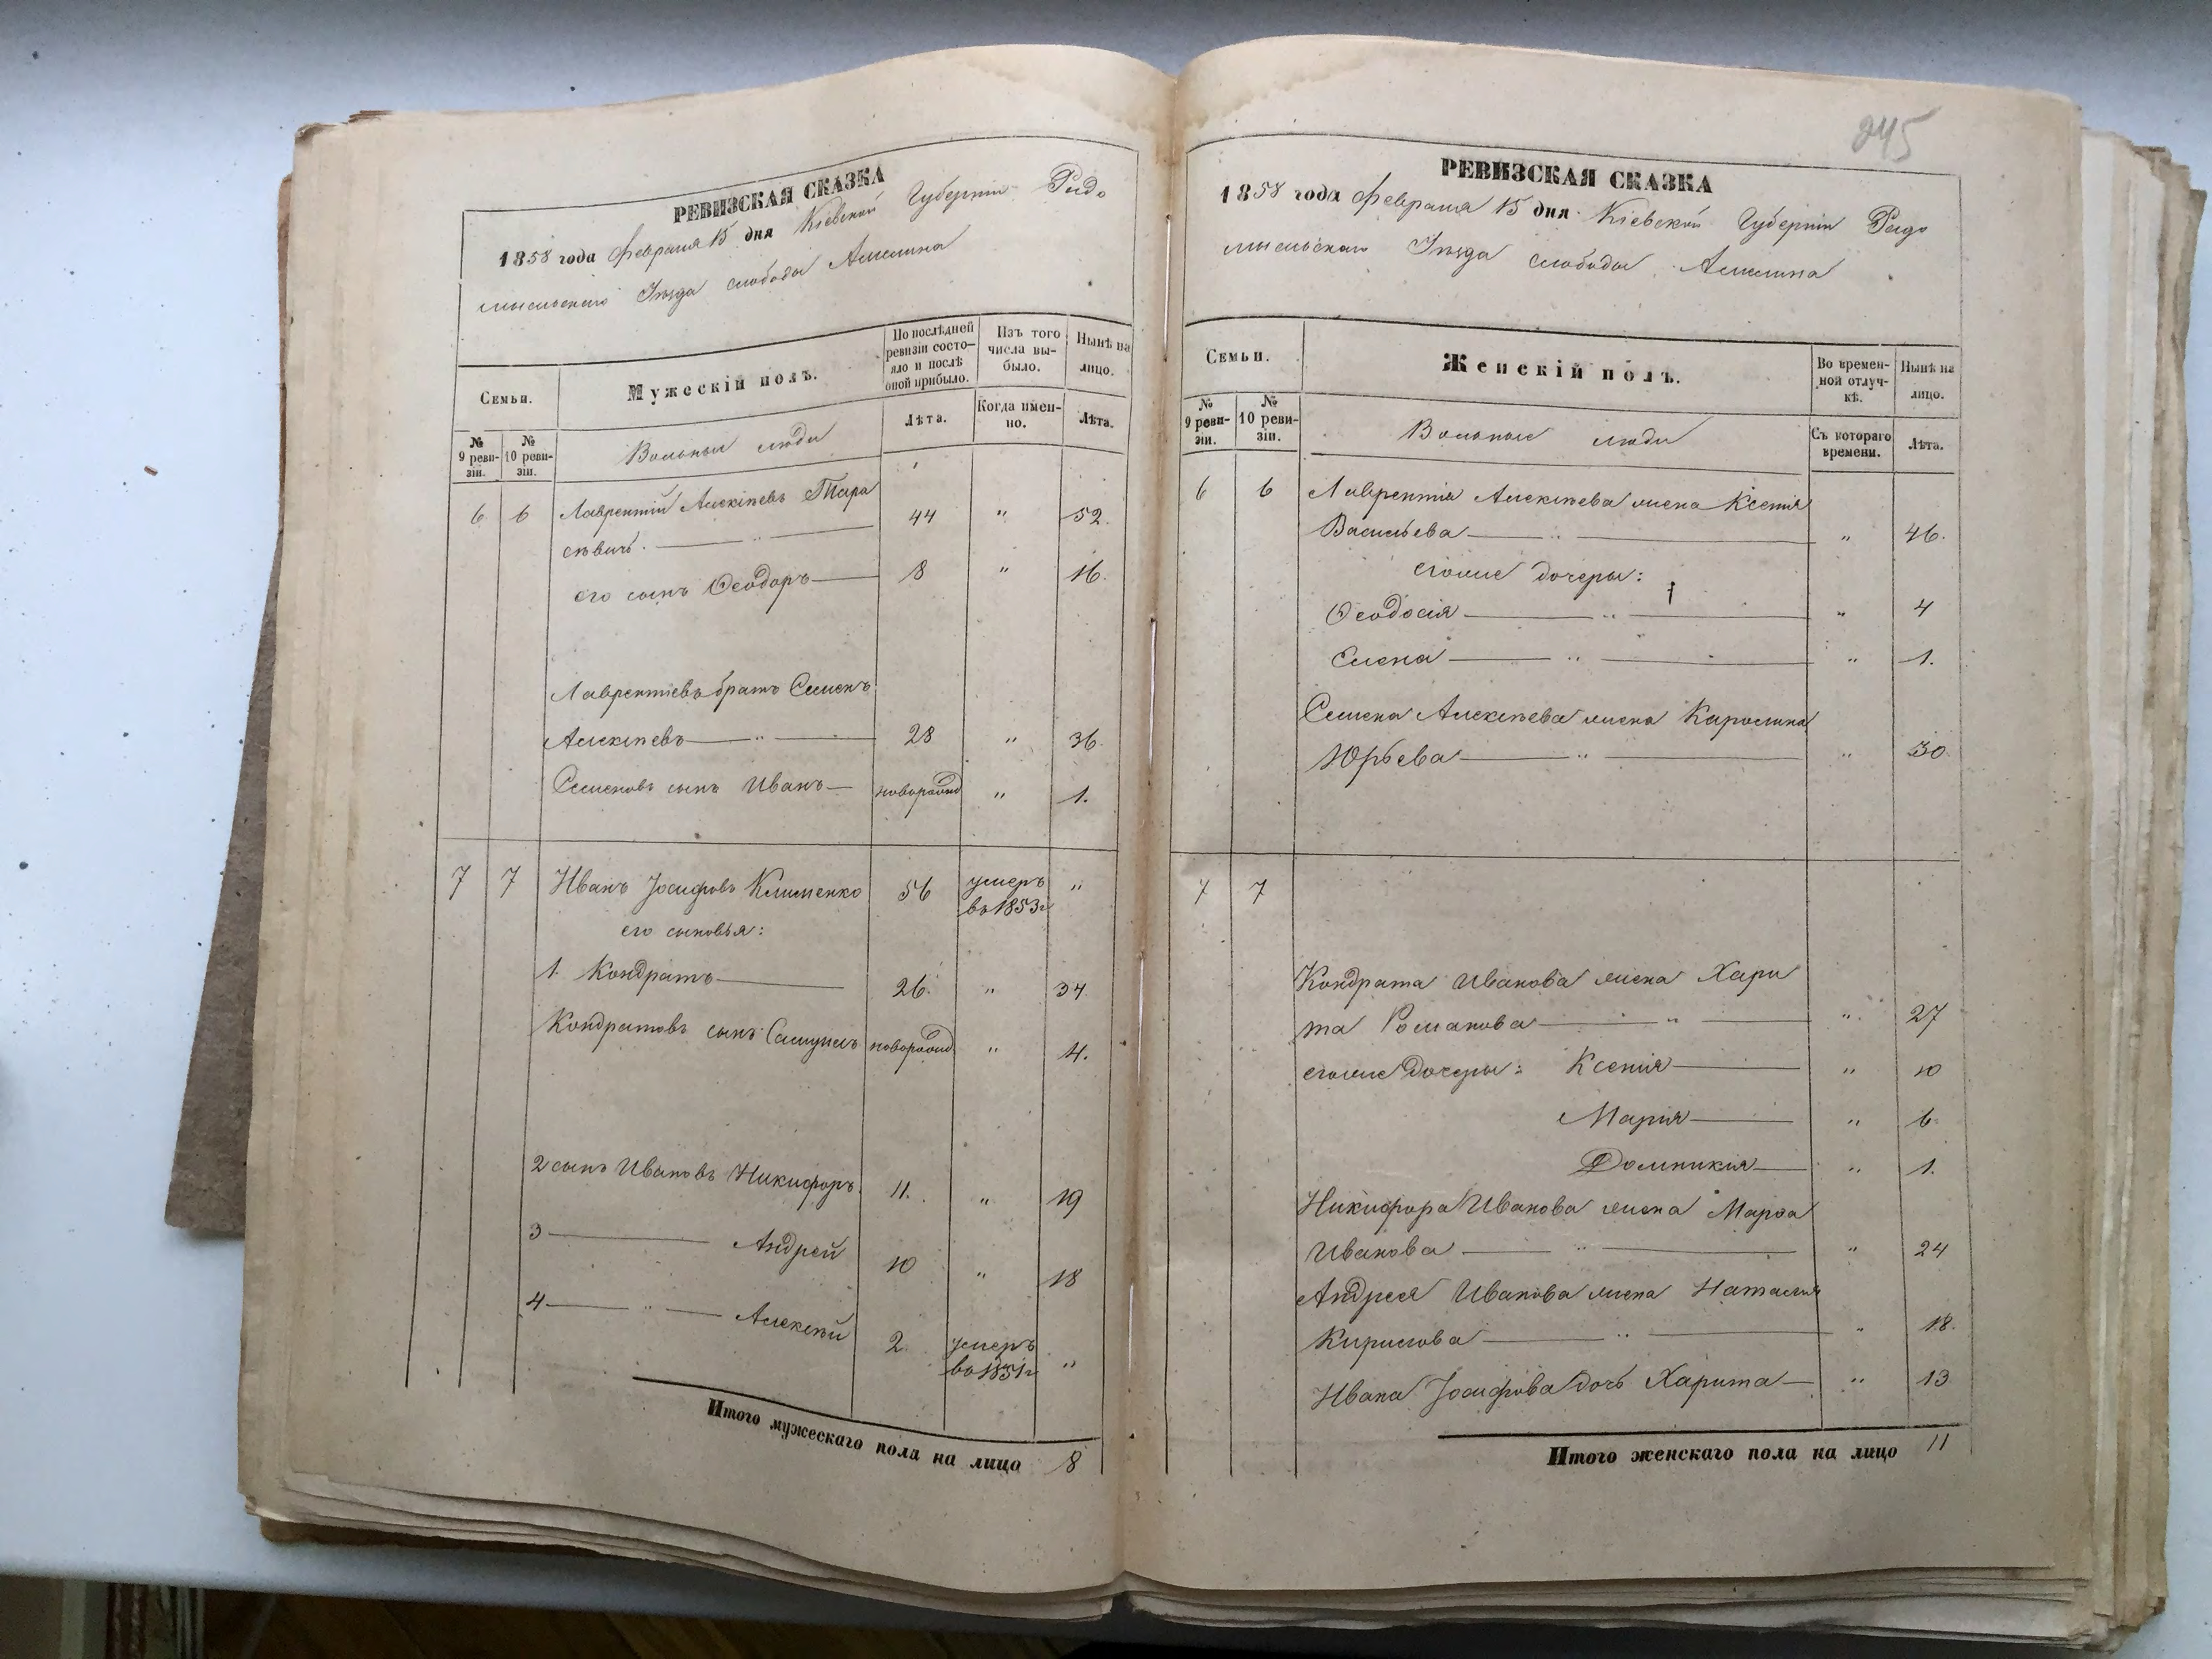 РЕВИЗСКАЯ СКАЗКА
1858 года Февраля 15 дня Кіевской Губерніи Радо
мысльскаго Уѣзда слободы Амелина
Семьи.
Мужескій полъ.
По послѣдней ревизіи состояло и послѣ оной прибыло.
Изъ того числа выбыло.
Нынѣ на лицо.
№ 9 ревизіи.
№ 10 ревизіи.
Вольные люди
Лѣта.
Когда именно.
Лѣта.
6 6 Лаврентій Алексѣевъ Тара
сѣвичъ. — " — 44 " 52.
его сынъ Ѳеодоръ — 8 " 16.
Лаврентіевъ братъ Семенъ
Алексѣевъ — " — 28 " 36.
Семеновъ сынъ Иванъ — новорожд " 1.
7 7 Иванъ Іосифовъ Клименко 56 умеръ "
въ 1853г
его сыновья:
1. Кондратъ — 26. " 34
Кондратовъ сынъ Самуилъ новорожд. " 4.
2 сынъ Ивановъ Никифоръ 11. " 19
3 — Андрей 10 " 18
4 — " — Алексѣй 2 умеръ "
въ 1851г
Итого мужескаго пола на лицо 8
245
РЕВИЗСКАЯ СКАЗКА
1858 года Февраля 15 дня Кіевской Губерніи Радо
мысльскаго Уѣзда слободы Амелина
Семьи.
Женскій полъ.
Во временной отлучкѣ.
Нынѣ на лицо.
№ 9 ревизіи.
№ 10 ревизіи.
Вольные люди
Съ котораго времени.
Лѣта.
6 6 Лаврентія Алексѣева жена Ксенія
Васильева — " — " 46.
его же дочеры:
Ѳеодосія — " — " 4
Елена — " — " 1.
Семена Алексѣева жена Каролина
Юрьева — " — " 30.
7 7
Кондрата Иванова жена Хари
та Романова — " — " 27
его же дочеры: Ксенія — " 10
Марія — " 6.
Домникія — " 1.
Никифора Иванова жена Марѳа
Иванова — " — " 24
Андрея Иванова жена Наталія
Кирилова — " — " 18.
Ивана Іосифова дочь Харита — " 13
Итого женскаго пола на лицо 11